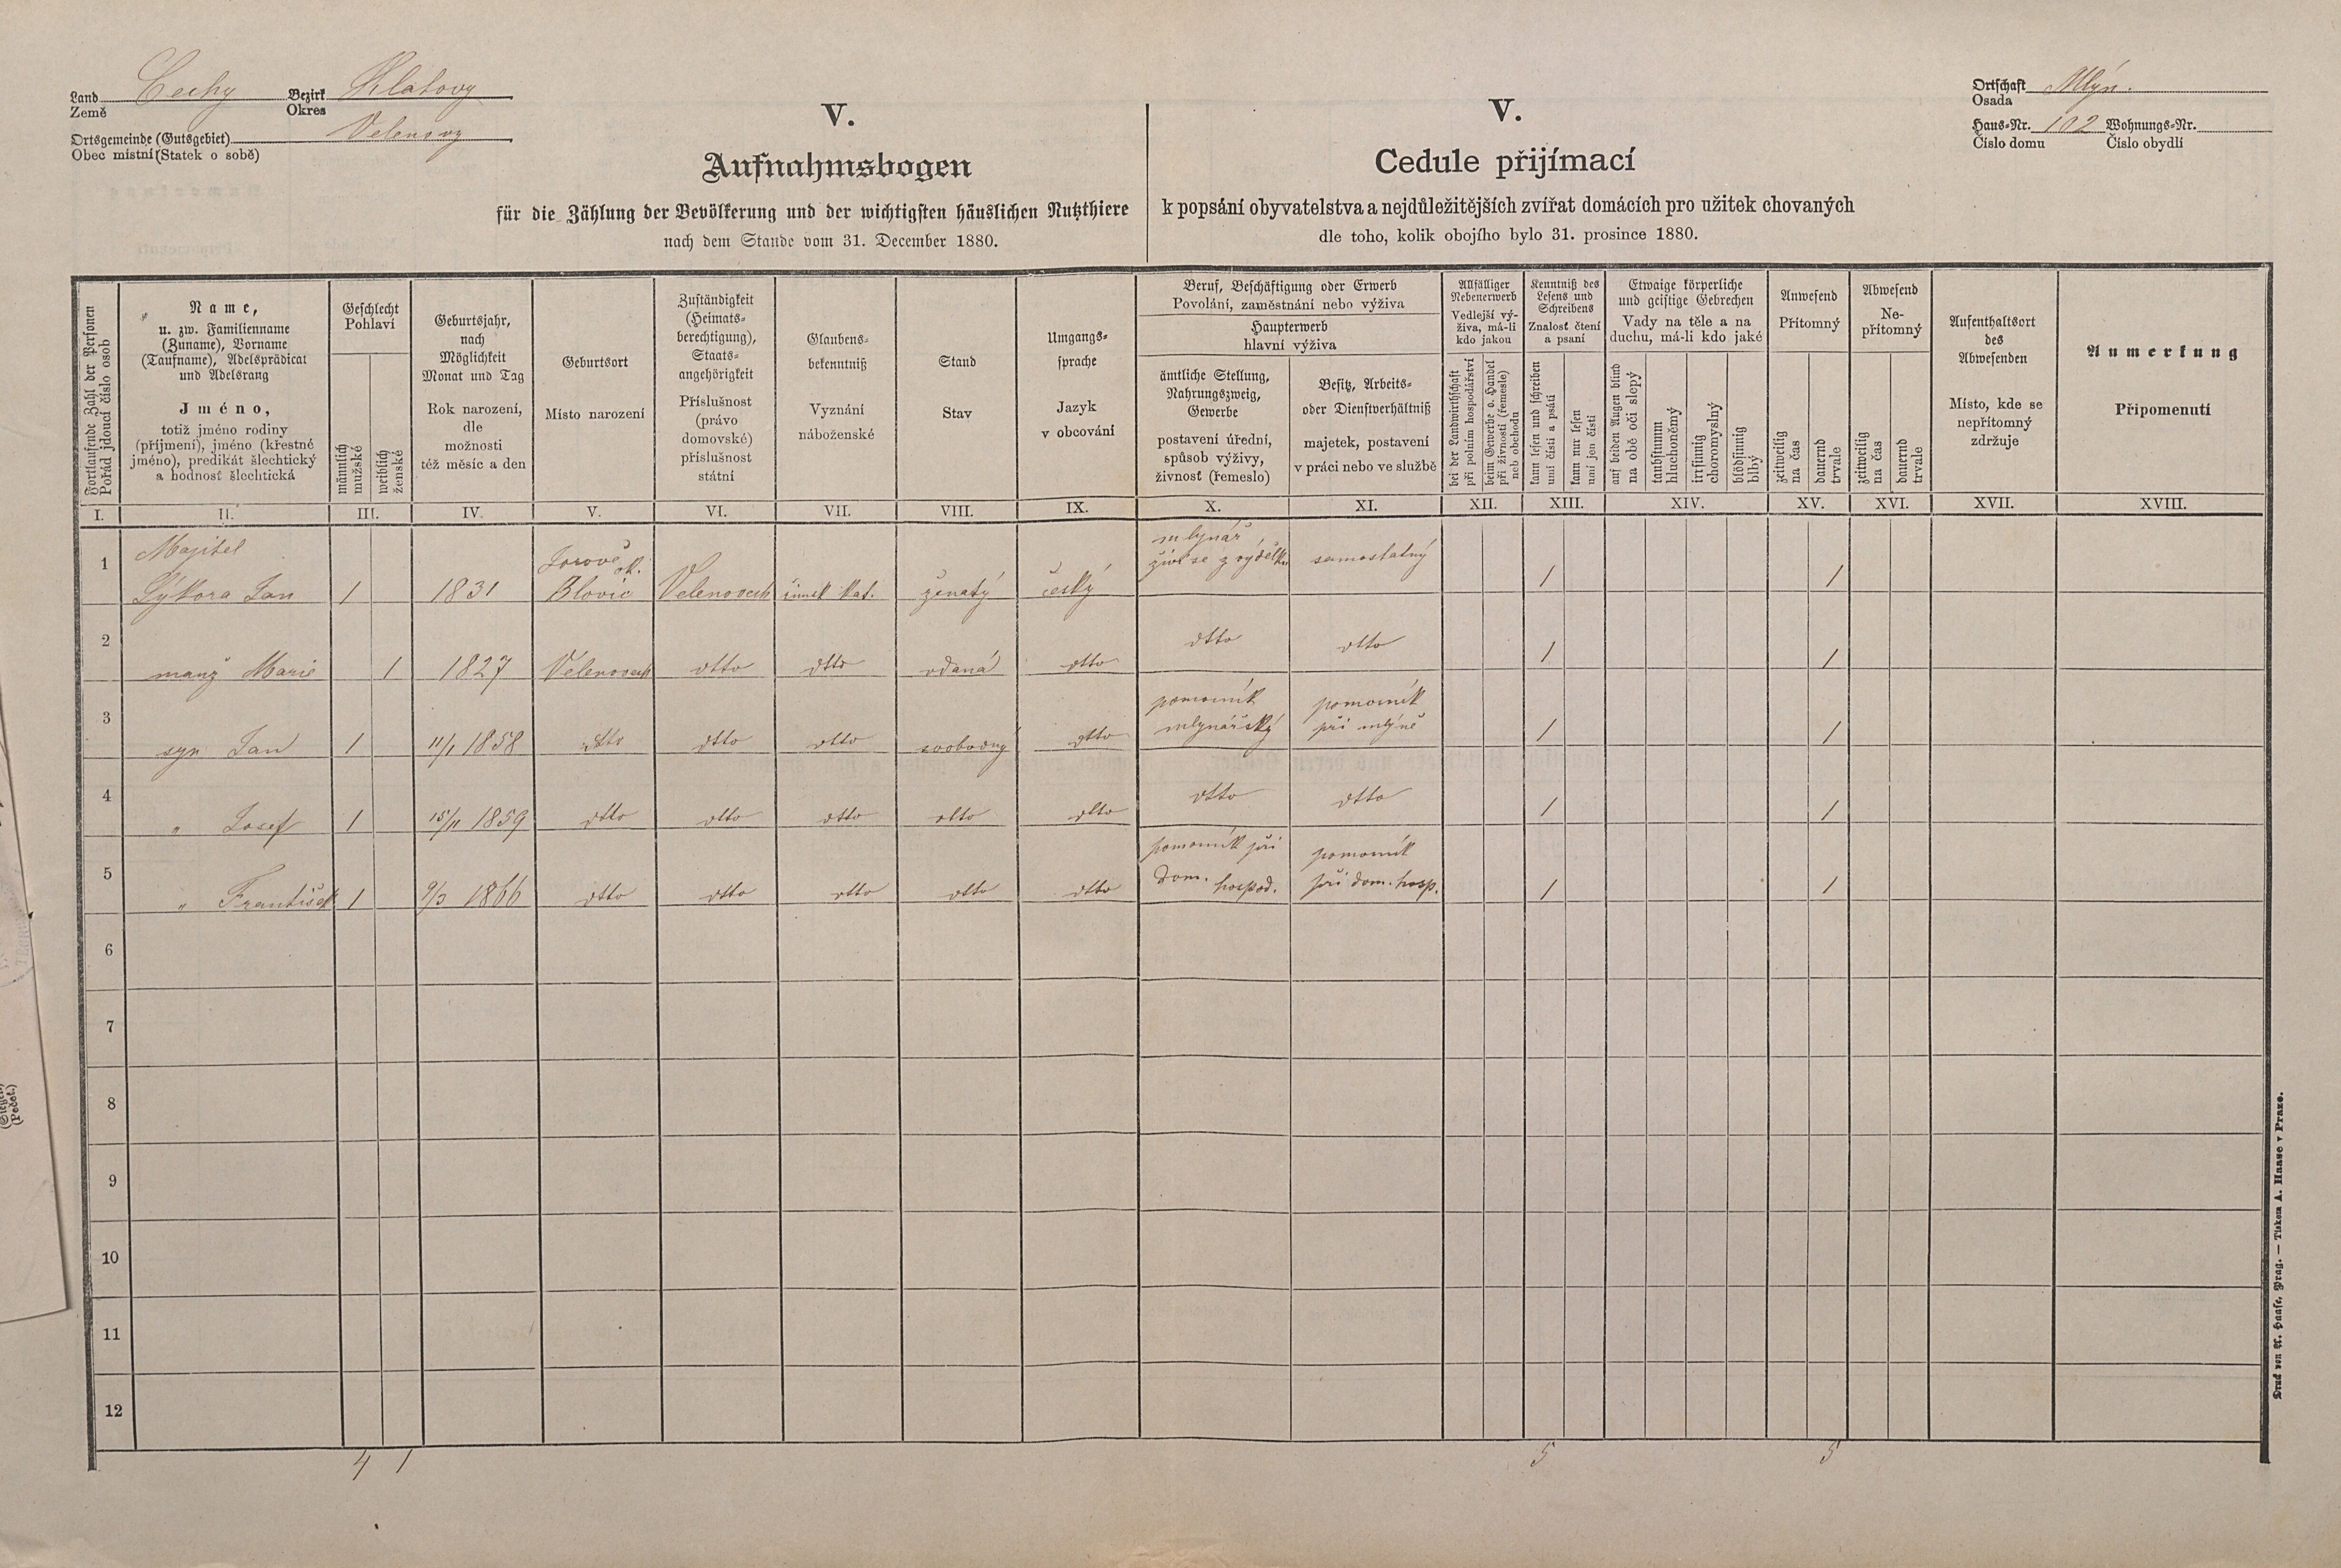 Land Čechy Bezirk Klatovy
Země Okres
Ortsgemeinde (Gutsgebiet) Velenovy
Obec místní (Statek o sobě)
Ortschaft Mlýn.
Osada
Haus-Nr. 102 Wohnungs-Nr.
Číslo domu Číslo obydlí
V.
Aufnahmsbogen
für die Zählung der Bevölkerung und der wichtigsten häuslichen Nutzthiere
nach dem Stande vom 31. December 1880.
V.
Cedule přijímací
k popsání obyvatelstva a nejdůležitějších zvířat domácích pro užitek chovaných
dle toho, kolik obojího bylo 31. prosince 1880.
Fortlaufende Zahl der Personen
Pořád jdoucí číslo osob
Name,
u. zw. Familienname
(Zuname), Vorname
(Taufname), Adelsprädicat
und Adelsrang
Jméno,
totiž jméno rodiny
(příjmení), jméno (křestné
jméno), predikát šlechtický
a hodnosť šlechtická
Geschlecht
Pohlaví
männlich
mužské
weiblich
ženské
Geburtsjahr,
nach
Möglichkeit
Monat und Tag
Rok narození,
dle
možnosti
též měsíc a den
Geburtsort
Místo narození
Zuständigkeit
(Heimats-
berechtigung),
Staats-
angehörigkeit
Příslušnost
(právo
domovské)
příslušnost
státní
Glaubens-
bekenntniß
Vyznání
náboženské
Stand
Stav
Umgangs-
sprache
Jazyk
v obcování
Beruf, Beschäftigung oder Erwerb
Povolání, zaměstnání nebo výživa
Haupterwerb
hlavní výživa
ämtliche Stellung,
Nahrungszweig,
Gewerbe
postavení úřední,
spůsob výživy,
živnosť (řemeslo)
Besitz, Arbeits-
oder Dienstverhältniß
majetek, postavení
v práci nebo ve službě
Allfälliger
Nebenerwerb
Vedlejší vý-
živa, má-li
kdo jakou
bei der Landwirthschaft
při polním hospodářství
beim Gewerbe o. Handel
při živnosti (řemesle)
neb obchodu
Kenntniß des
Lesens und
Schreibens
Znalosť čtení
a psaní
kann lesen und schreiben
umí čísti a psáti
kann nur lesen
umí jen čísti
Etwaige körperliche
und geistige Gebrechen
Vady na těle a na
duchu, má-li kdo jaké
auf beiden Augen blind
na obě oči slepý
taubstumm
hluchoněmý
irrsinnig
choromyslný
blödsinnig
blbý
Anwesend
Přítomný
zeitweilig
na čas
dauernd
trvale
Abwesend
Ne-
přítomný
zeitweilig
na čas
dauernd
trvale
Aufenthaltsort
des
Abwesenden
Místo, kde se
nepřítomný
zdržuje
Anmerkung
Připomenutí
I. II. III. IV. V. VI. VII. VIII. IX. X. XI. XII. XIII. XIV. XV. XVI. XVII. XVIII.
1 Majitel mlynář,
ok. živí se z výdělku samostatný
Sýkora Jan 1 1831 Blovic Velenovech římsk kat. ženatý český 1 1
2 manž Marie 1 1827 Velenovech dtto dtto vdaná dtto dtto dtto 1 1
3 pomocník pomocník
syn Jan 1 11/1 1858 dtto dtto dtto svobodný dtto mlynářský při mlýně 1 1
4 " Josef 1 15/11 1859 dtto dtto dtto dtto dtto dtto dtto 1 1
5 pomocník při pomocník
" František 1 9/3 1866 dtto dtto dtto dtto dtto dom. hospod. při dom. hosp. 1 1
6
7
8
9
10
11
12
4 1 5 5
Druck von A. Haase, Prag. — Tiskem A. Haase v Praze.
(Siegel)
(Pečeť.)